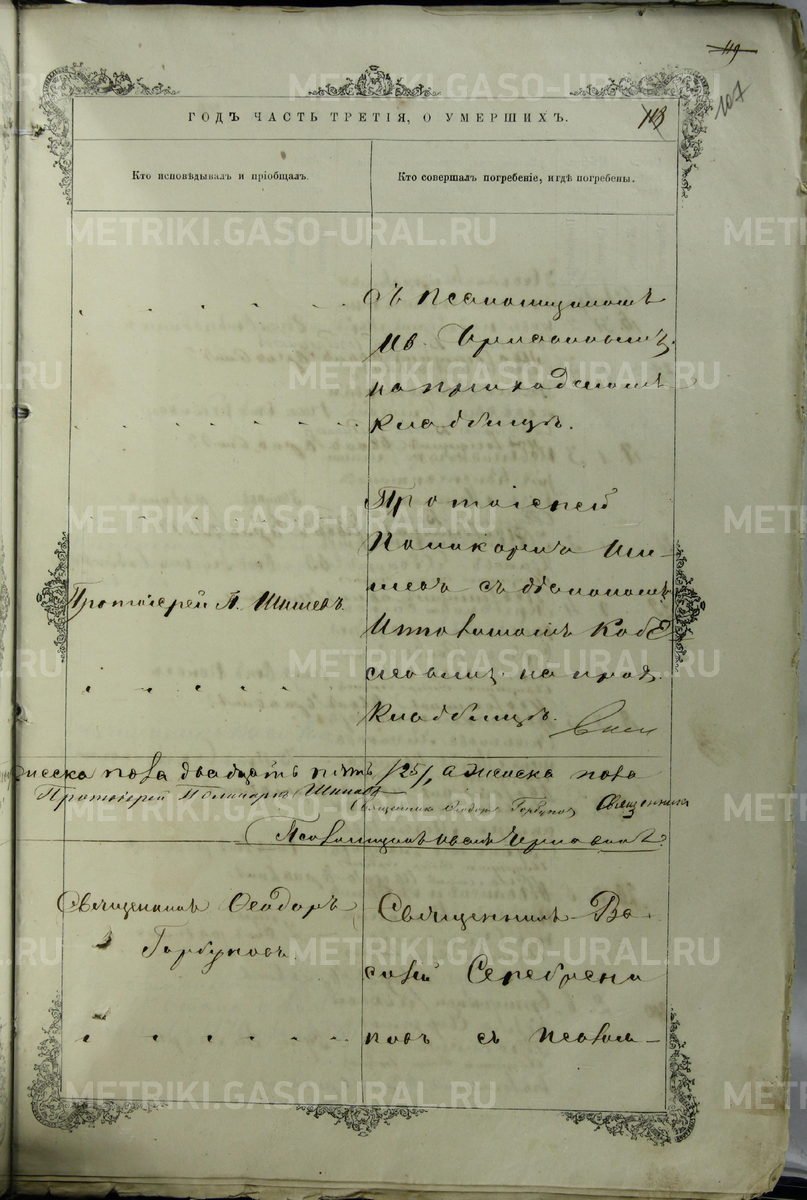 119
107
ГОДЪ ЧАСТЬ ТРЕТІЯ, О УМЕРШИХЪ.
113
Кто исповѣдывалъ и пріобщалъ.
Кто совершалъ погребеніе, и гдѣ погребены.
съ псаломщикомъ
Ив.
на приходскомъ
кладбищѣ.
Протоіерей
Поликарпъ Ши-
шевъ съ діакономъ
Протоіерей П. Шишевъ
на прих.
кладбищѣ.
пола двадцать пять /25/, а женска пола
Протоіерей Поликарпъ Шишевъ
Священникъ Ѳеодоръ Горбуновъ Священникъ
Псаломщикъ Иванъ
Священникъ Ѳеодоръ
Горбуновъ.
Священникъ Ва-
силій Серебрени-
ковъ съ псалом-
METRIKI.GASO-URAL.RU